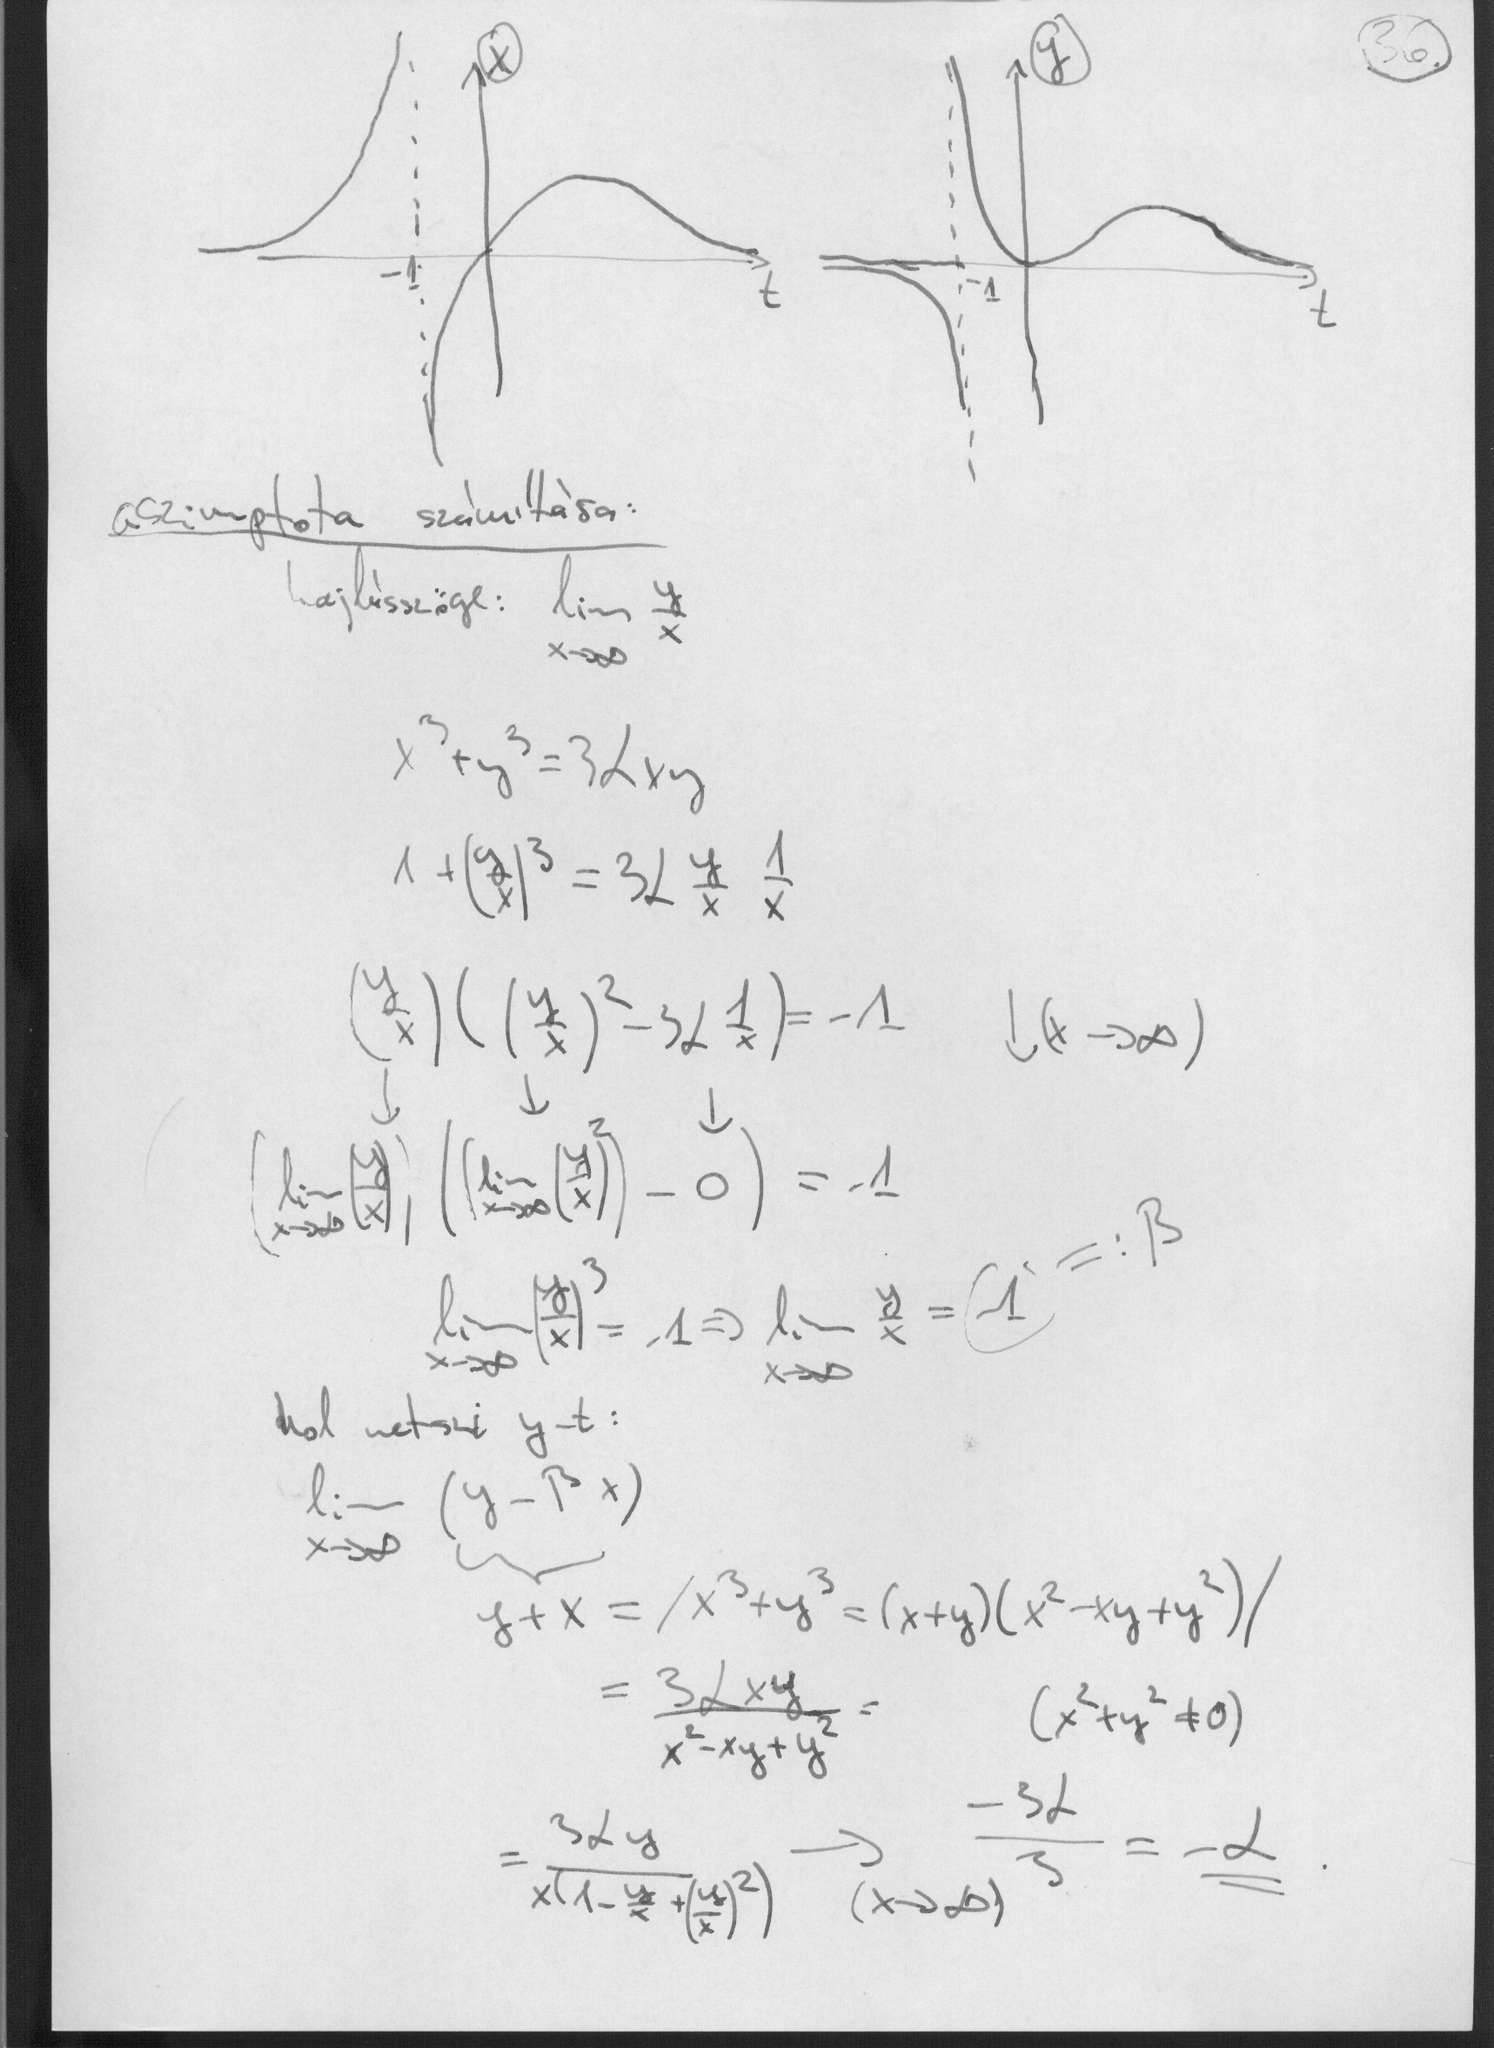 36.
x
y
-1
t
-1
t
aszimptota számítása:
hajlásszöge: lim x→∞ y/x
x³ + y³ = 3αxy
1 + (y/x)³ = 3α y/x 1/x
(y/x) ((y/x)² - 3α 1/x) = -1 ↓(x→∞)
↓ ↓ ↓
(lim x→∞ (y/x)) ((lim x→∞ (y/x)²) - 0) = -1
lim x→∞ (y/x)³ = -1 ⇒ lim x→∞ y/x = -1 =: β
hol metszi y-t:
lim x→∞ (y - βx)
y + x = /x³ + y³ = (x+y)(x² - xy + y²)/
= 3αxy / (x² - xy + y²) = (x² + y² ≠ 0)
= 3αy / x(1 - y/x + (y/x)²) → (x→∞) -3α/3 = -α.